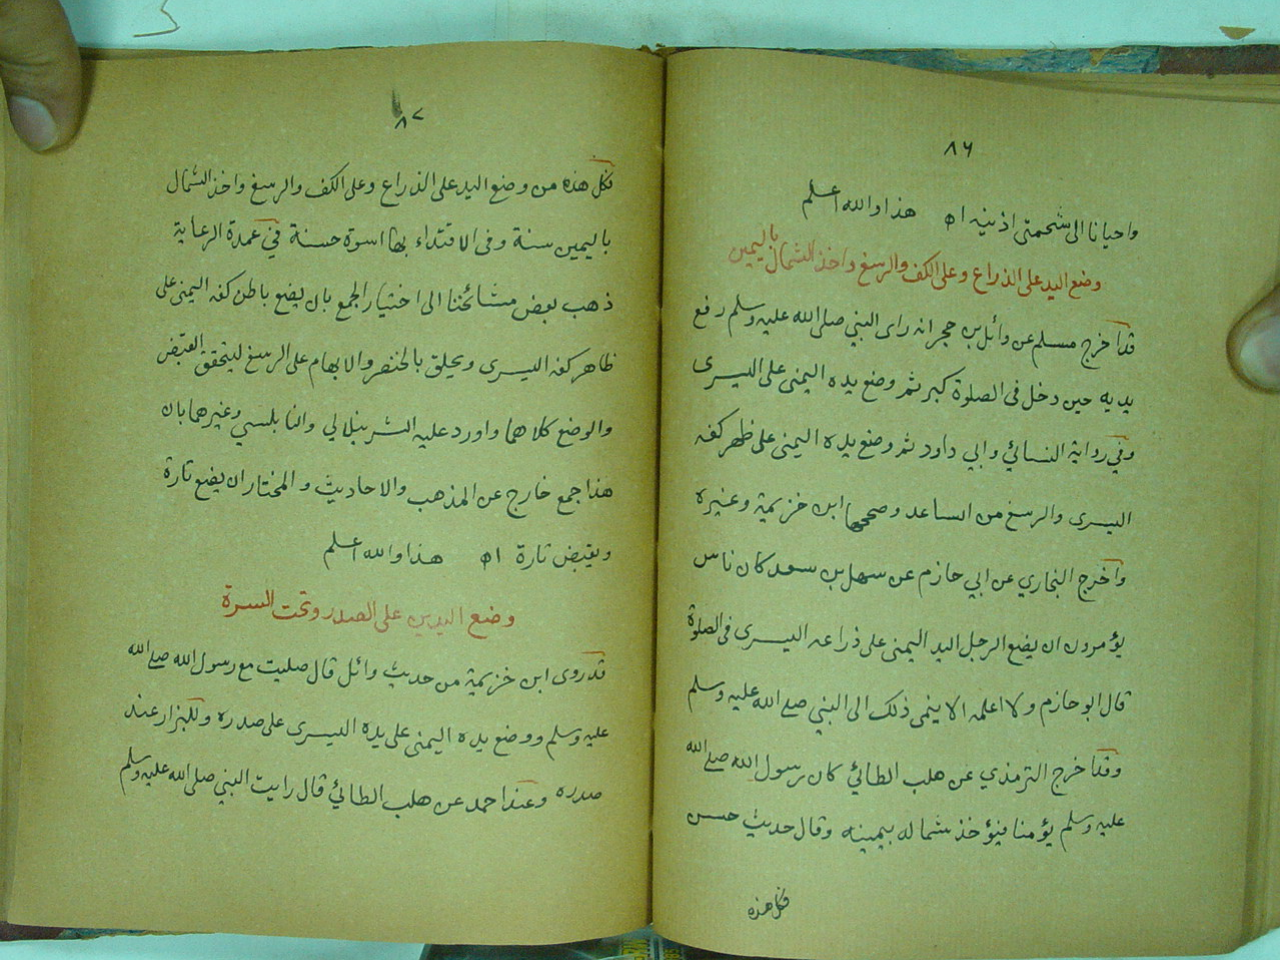 ٨٦
واحيانا الى شحمتى اذنيه اه هذا والله اعلم
وضع اليد على الذراع وعلى الكف والرسغ واخذ الشمال باليمين
قد اخرج مسلم عن وائل بن حجر انه راى النبي صلى الله عليه وسلم رفع
يديه حين دخل فى الصلوة كبر ثم وضع يده اليمنى على اليسرى
وفي رواية النسائي وابي داود ثم وضع يده اليمنى على ظهر كفه
اليسرى والرسغ من الساعد وصححها ابن خزيمة وغيره
واخرج البخاري عن ابي حازم عن سهل بن سعد كان ناس
يؤمرون ان يضع الرجل اليد اليمنى على ذراعه اليسرى فى الصلوة
قال ابو حازم ولا اعلمه الا ينمى ذلك الى النبي صلى الله عليه وسلم
وقد اخرج الترمذي عن هلب الطائي كان رسول الله صلى الله
عليه وسلم يؤمنا فيؤخذ شماله بيمينه وقال حديث حسن
فكل هذه
٨٧
فكل هذه من وضع اليد على الذراع وعلى الكف والرسغ واخذ الشمال
باليمين سنة وفى الاقتداء بها اسوة حسنة في عمدة الرعاية
ذهب بعض مشائخنا الى اختيار الجمع بان يضع باطن كفه اليمنى على
ظاهر كفه اليسرى ويحلق بالخنصر والابهام على الرسغ ليتحقق القبض
والوضع كلاهما واورد عليه الشرنبلالي والنابلسي وغيرهما بان
هذا جمع خارج عن المذهب والاحاديث والمختار ان يضع تارة
ويقبض تارة اه هذا والله اعلم
وضع اليدين على الصدر وتحت السرة
قد روى ابن خزيمة من حديث وائل قال صليت مع رسول الله صلى الله
عليه وسلم ووضع يده اليمنى على يده اليسرى على صدره وللبزار عند
صدره وعند احمد عن هلب الطائي قال رايت النبي صلى الله عليه وسلم